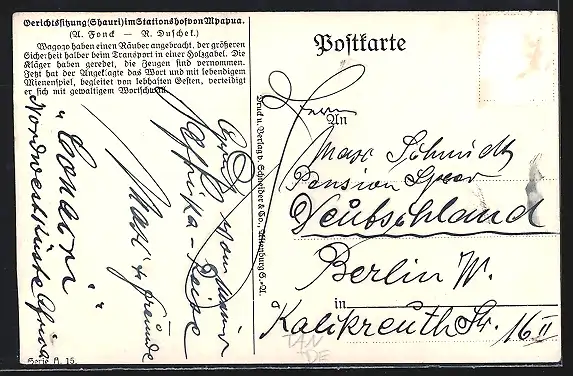 Gerichtssitzung (Schauri) im Stationshof von Mpapua.
(A. Fonck — R. Duschek.)
Wagogo haben einen Räuber angebracht, der größeren
Sicherheit halber beim Transport in einer Holzgabel. Die
Kläger haben geredet, die Zeugen sind vernommen.
Jetzt hat der Angeklagte das Wort und mit lebendigem
Mienenspiel, begleitet von lebhaften Gesten, verteidigt
er sich mit gewaltigem Wortschwall.
Gruß von meiner
Afrika-Reise
Max &
Freunde
"Conacri"
Nordwestküste Afrika
Serie A. 15.
Druck u. Verlag v. Schneider & Co., Altenburg S.-A.
Postkarte
Herrn
An
Max Schmidt
Pension
Deutschland
Berlin W.
in
Kalkreuth Str. 16 II